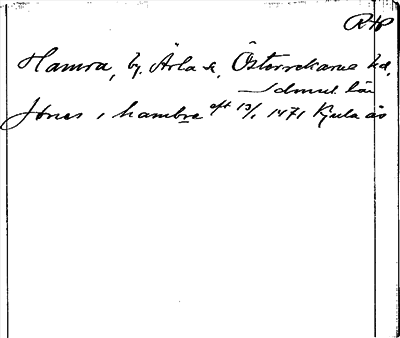 RAP
Hamra, by, Ärla s., Österrekarne hd,
Sdml. län
Jönes i hambre eft 13/1 1471 Kjula ås